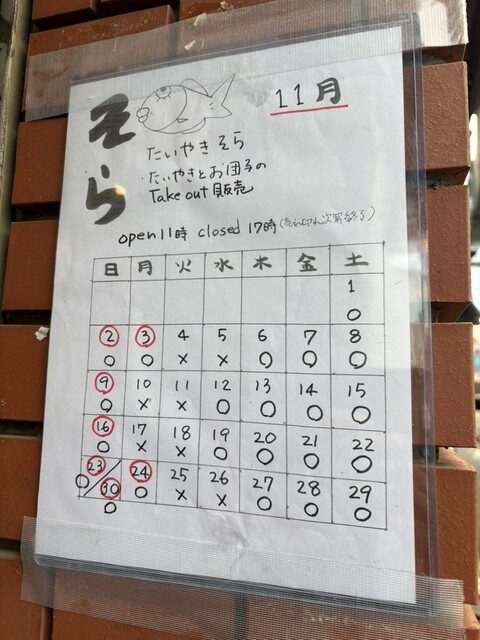 そら
11月
たいやきそら
・たいやきとお団子の
Take out 販売
open 11時 closed 17時(売れ切れ次第終了)
日 月 火 水 木 金 土
1
○
2 3 4 5 6 7 8
○ ○ × × ○ ○ ○
9 10 11 12 13 14 15
○ × × ○ ○ ○ ○
16 17 18 19 20 21 22
○ × × ○ ○ ○ ○
23/30 24 25 26 27 28 29
○ ○ ○ × × ○ ○ ○